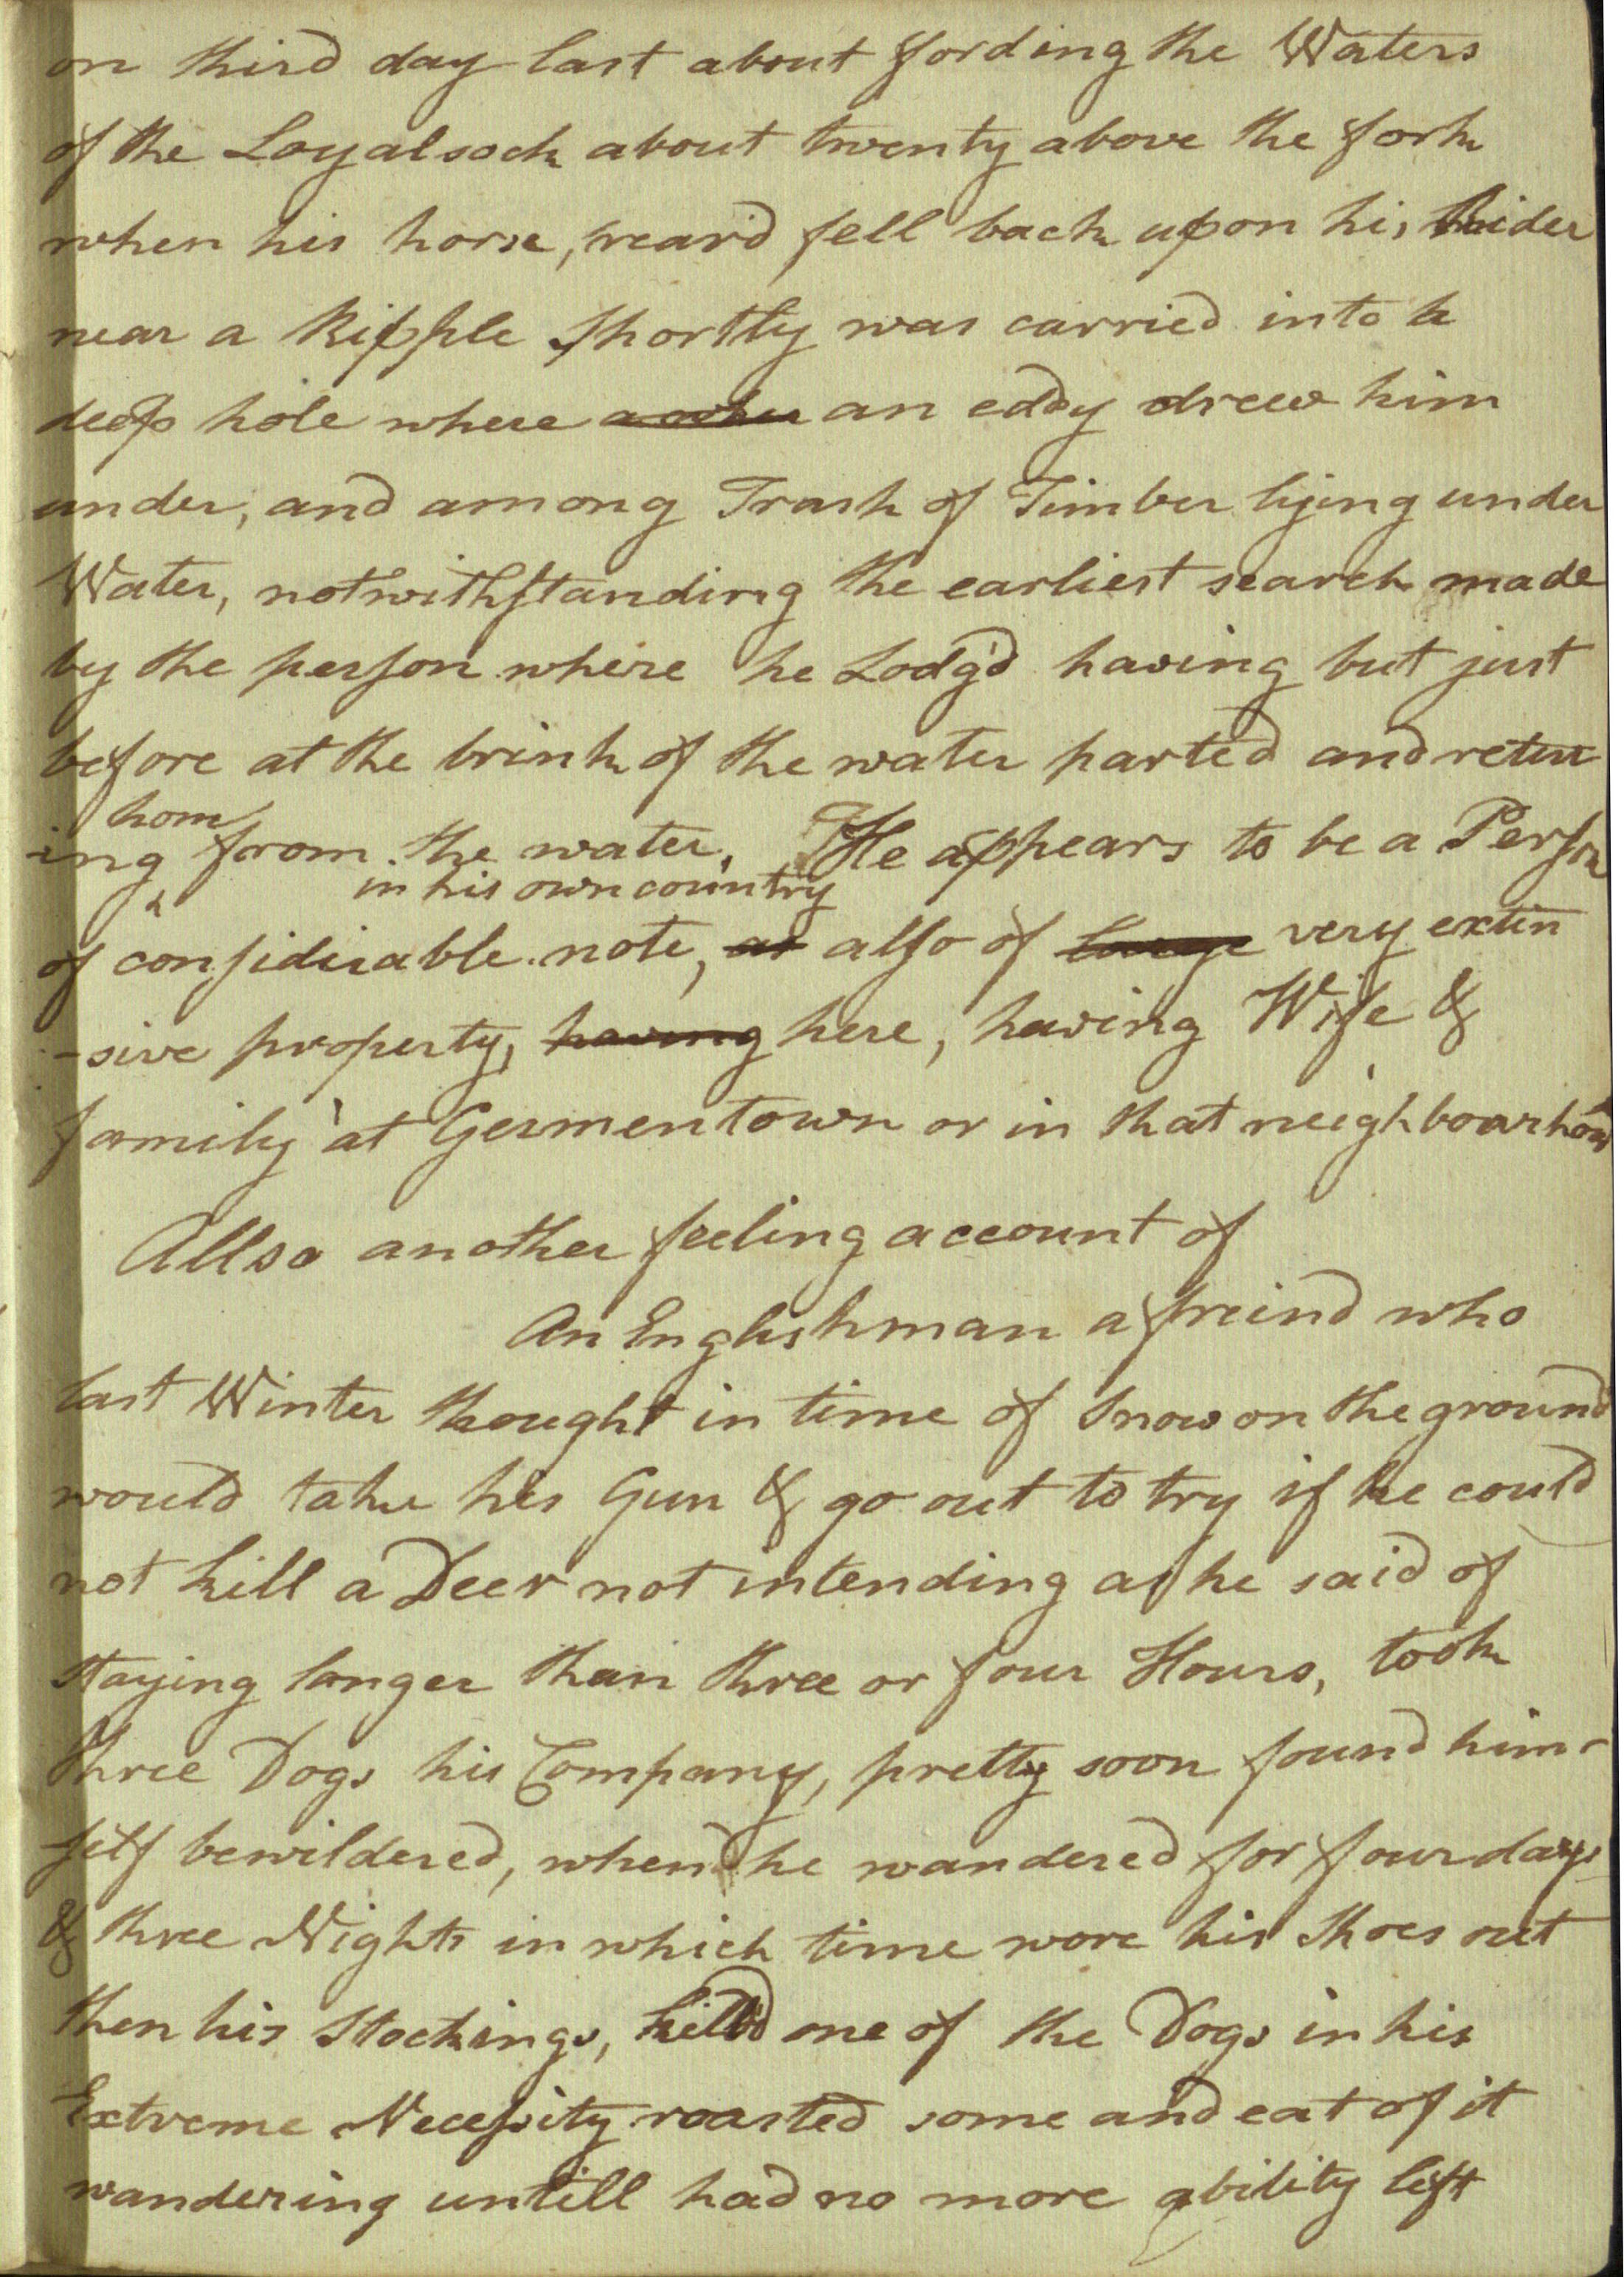 on third day last about fording the Waters
of the Loyalsock about twenty above the fork
when his horse, rear'd fell back upon his Rider
near a Ripple shortly was carried into a
deep hole where an eddy drew him
under, and among Trash of Timber lying under
Water, notwithstanding the earliest search made
by the person where he Lodg'd having but just
before at the brink of the water parted and return
hom
-ing from the water. He appears to be a Person
in his own country
of considirable note, as also of large very exten
-sive property, having here, having Wife &
family at Germentown or in that neighbourhood
Allso another feeling account of
An Englishman a freind who
last Winter thought in time of Snow on the ground
would take his Gun & go out to try if he could
not kill a Deer not intending as he said of
staying longer than three or four Hours, took
three Dogs his Company, pretty soon found him-
self bewildered, when he wandered for four days
& three Nights in which time wore his Shoes out
then his Stockings, kill'd one of the Dogs in his
Extreme Necessity roasted some and eat of it
wandering untill had no more ability left